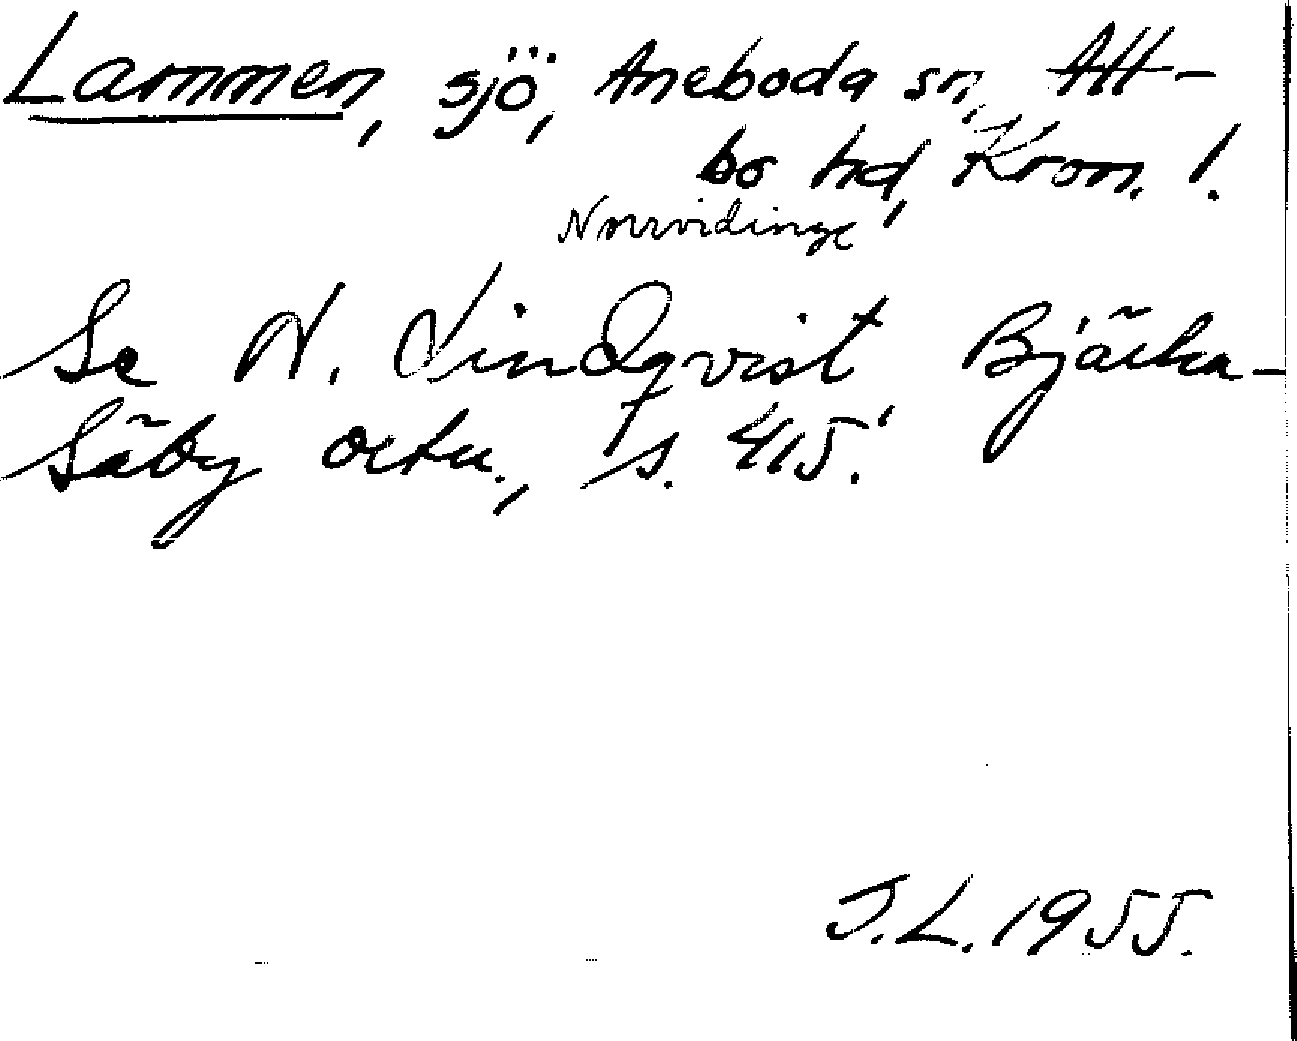 Lammen, sjö, Aneboda sn, All-
bo hd, Kron. l.
Norrvidinge
Se N. Lindqvist Bjärka-
Säby ortn., s. 415.
J.L. 1955.